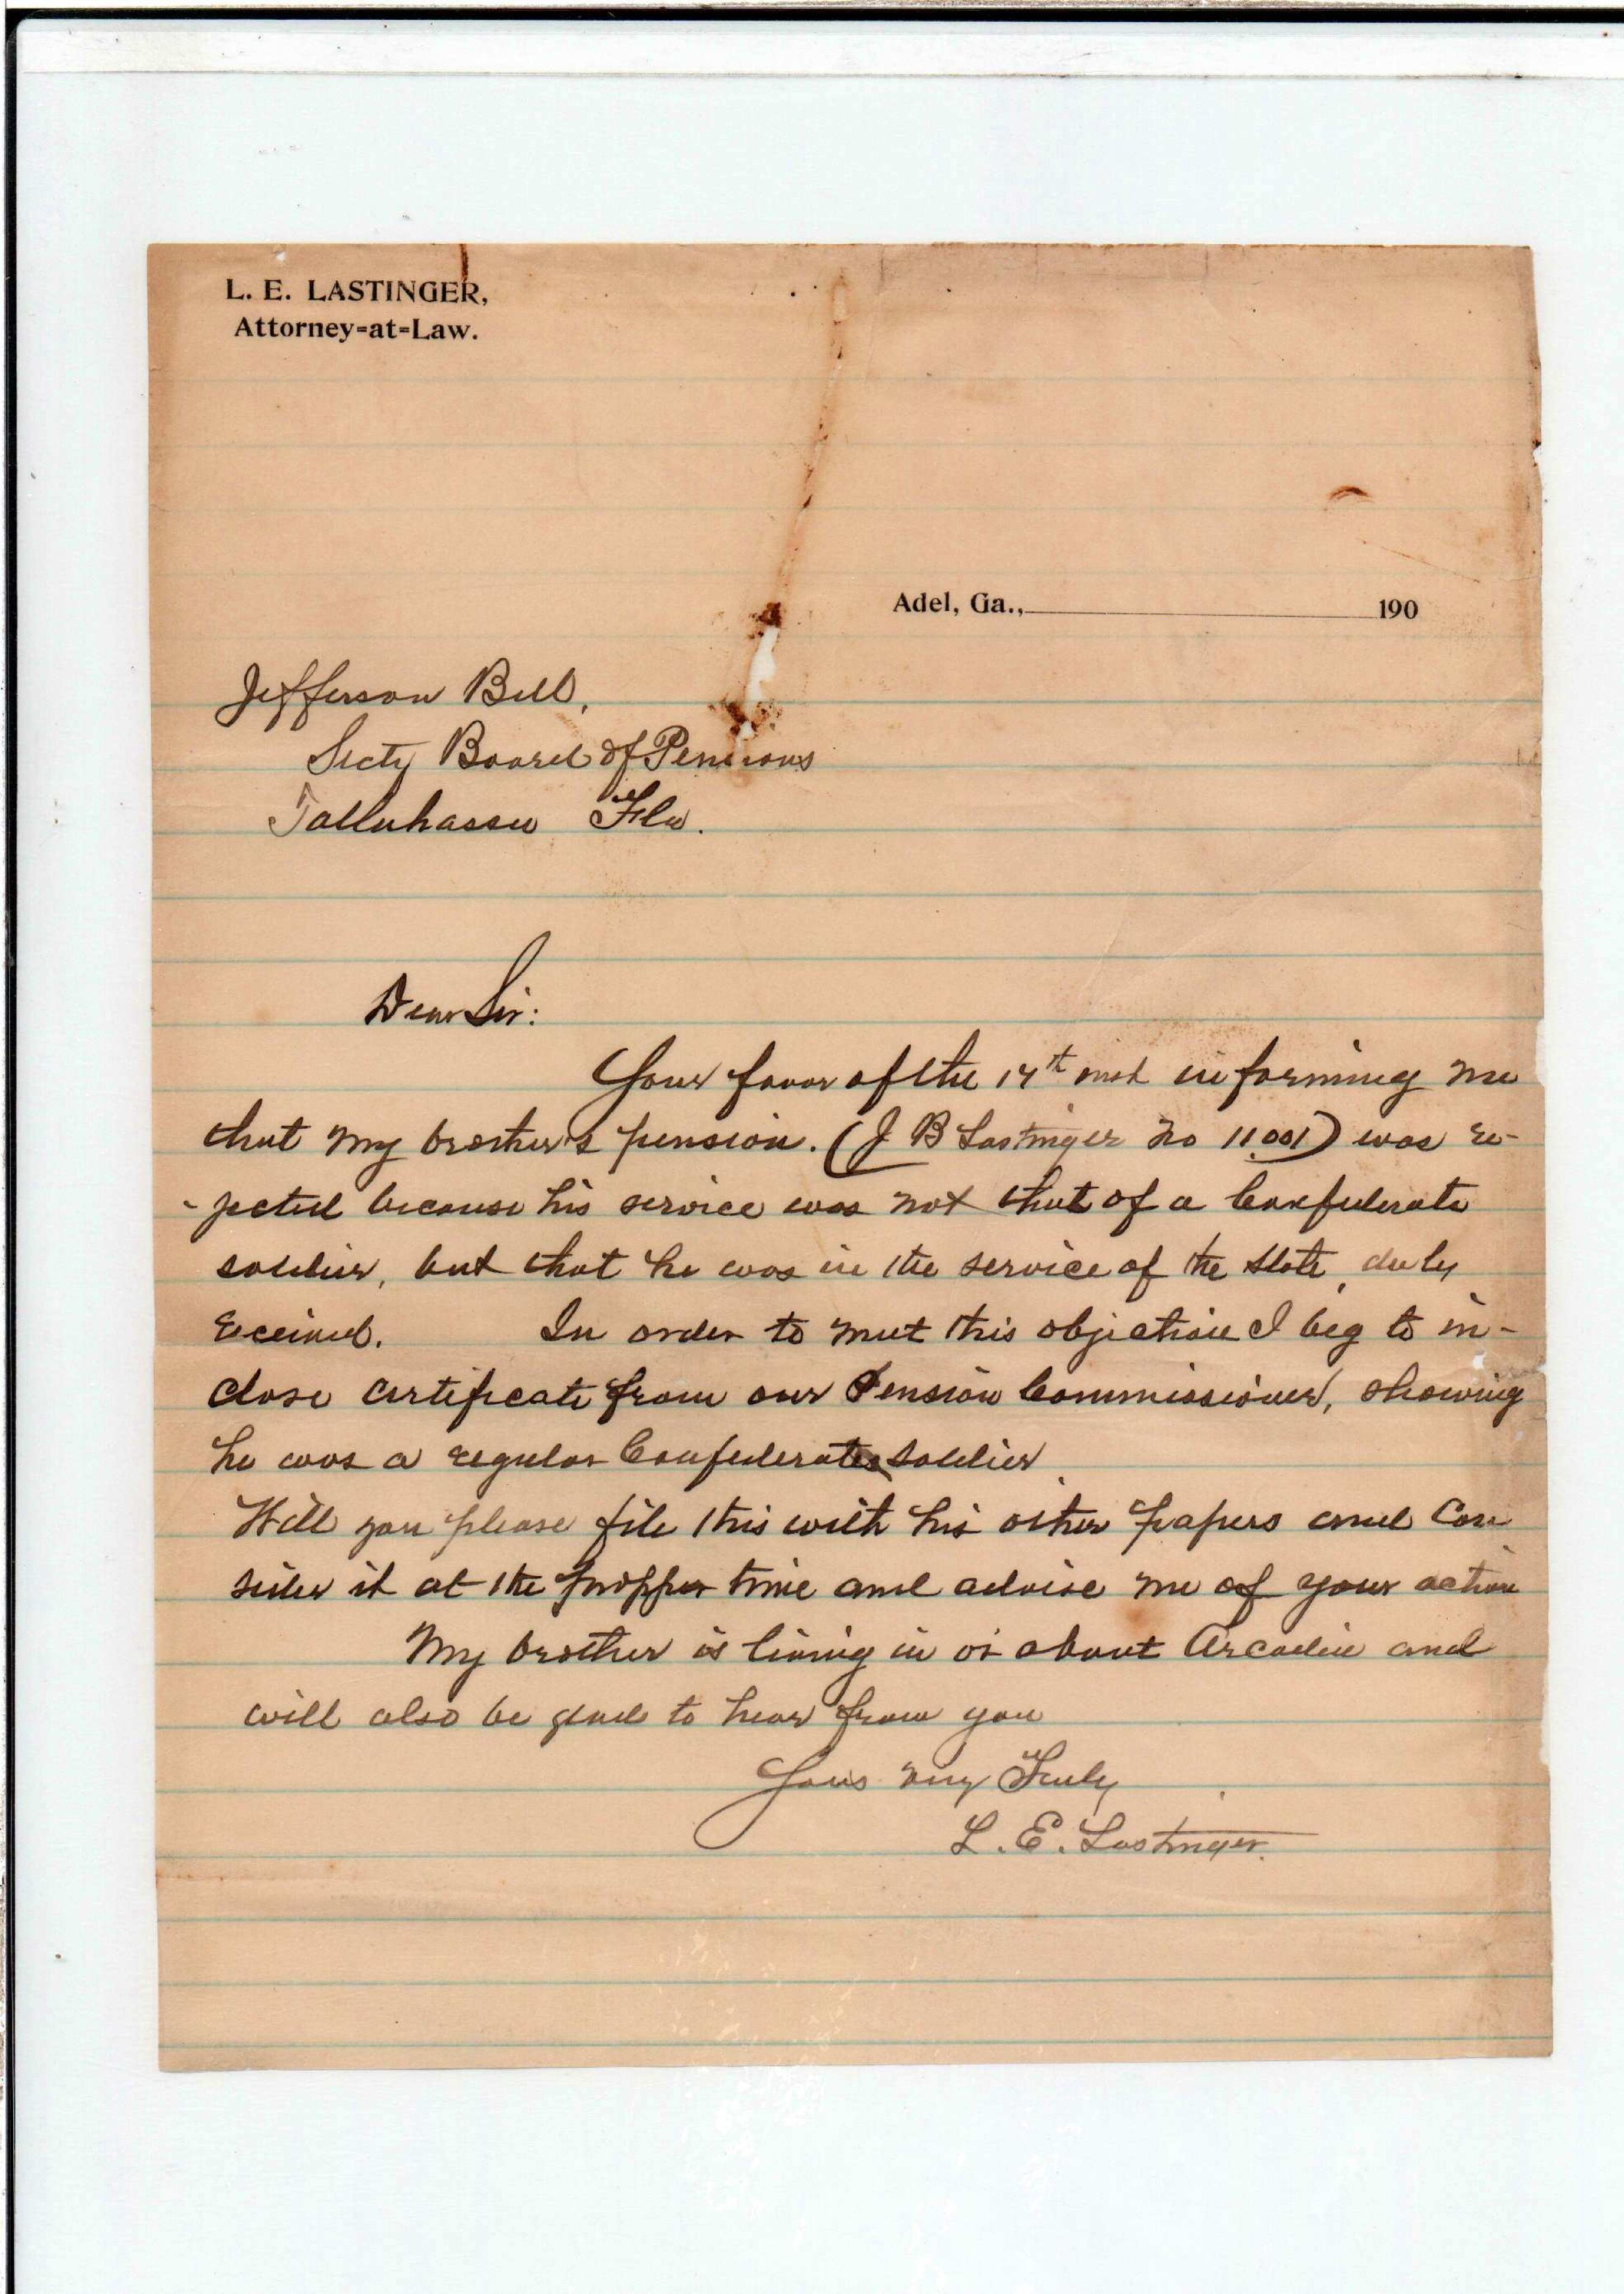 L. E. LASTINGER,
Attorney=at=Law.
Adel, Ga., 190
Jefferson Bell,
Secty Board of Pensions
Tallahassee Fla.
Dear Sir:
Your favor of the 17th inst informing me
that my brother's pension. (J B Lastinger No 11.001) was re-
-jected because his service was not that of a Confederate
soldier, but that he was in the service of the State, duly
received. In order to meet this objection I beg to in-
close certificate from our Pension Commissioner, showing
he was a regular Confederate soldier.
Will you please file this with his other papers and Con
sider it at the propper time and advise me of your action
My brother is living in or about Arcadia and
will also be glad to hear from you
Yours very Truly
L. E. Lastinger.